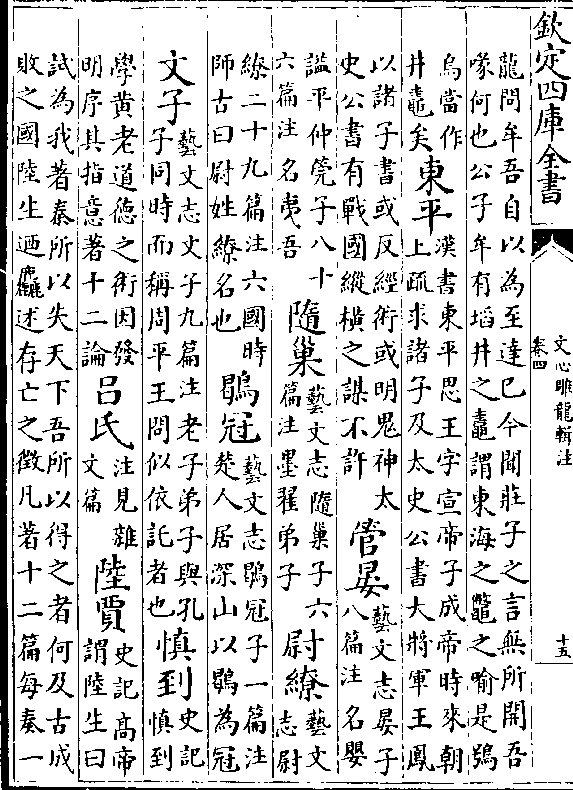 欽定四庫全書
文心雕龍輯注
卷四
十五
龍問牟吾自以為至達已今聞莊子之言無所開吾
喙何也公子牟有塪井之鼃謂東海之鼈之喻是鴞
烏當作
井鼃矣
東平
漢書東平思王字宣帝子成帝時來朝
上疏求諸子及太史公書大將軍王鳳
以諸子書或反經術或明鬼神太
史公書有戰國縱橫之謀不許
管晏
藝文志晏子
八篇注名嬰
謚平仲筦子八十
六篇注名夷吾
隨巢
藝文志隨巢子六
篇注墨翟弟子
尉繚
藝文
志尉
繚二十九篇注六國時
師古曰尉姓繚名也
鶡冠
藝文志鶡冠子一篇注
楚人居深山以鶡為冠
文子
藝文志文子九篇注老子弟子與孔
子同時而稱周平王問似依託者也
慎到
史記
慎到
學黄老道德之術因發
明序其指意著十二論
吕氏
注見雜
文篇
陸賈
史記高帝
謂陸生曰
試為我著秦所以失天下吾所以得之者何及古成
敗之國陸生迺麤述存亡之徴凡著十二篇每奏一